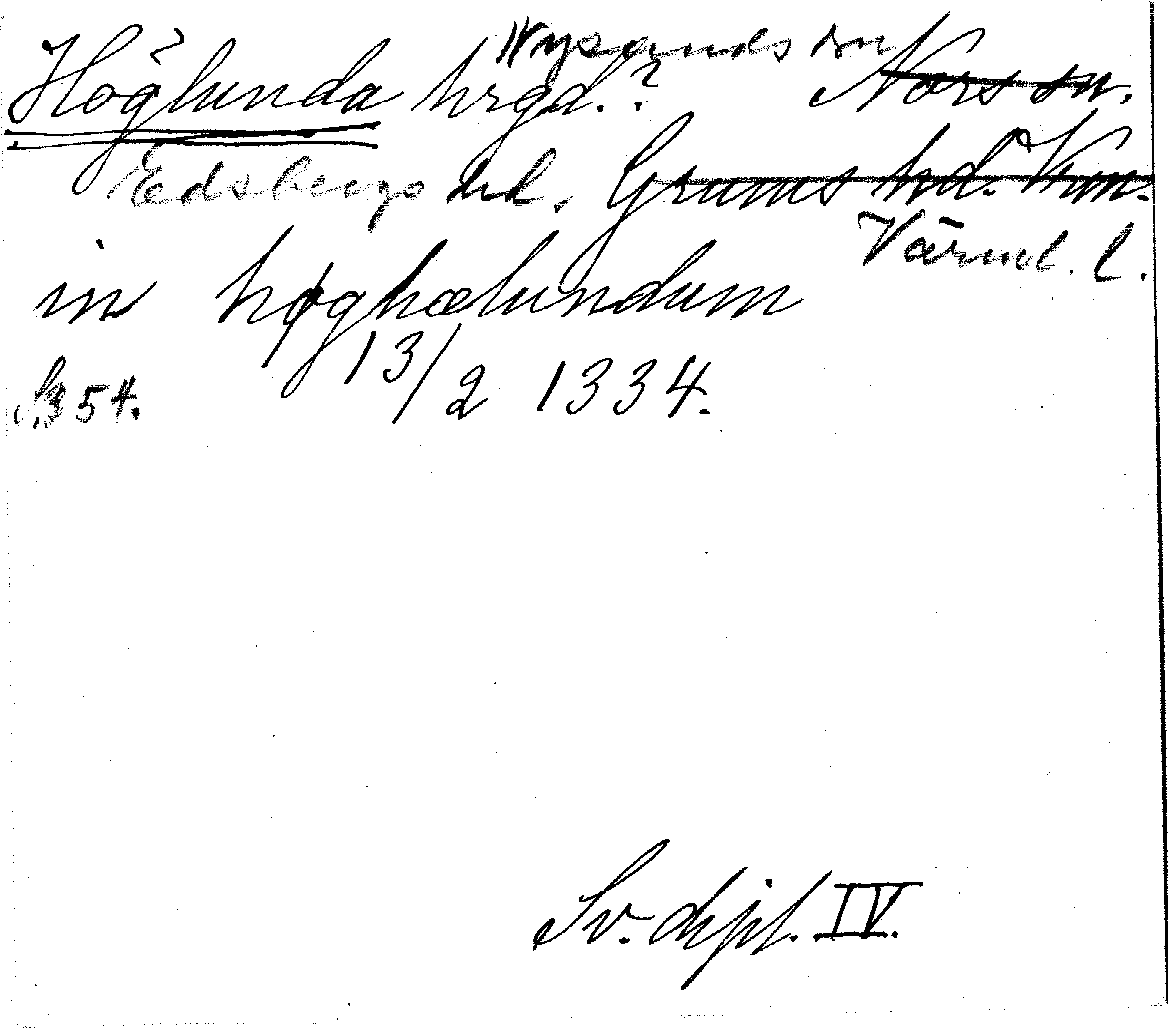 Nysunds sn
Höglunda hrgd.? Nors sn.
Edsbergs hd. Grums hd. Vrm.
Värml. l.
in høghælundum
S. 354. 13/2 1334.
Sv. dipl. IV.